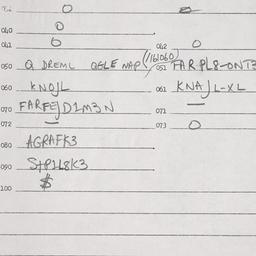 040 O
041 O 042 O
050 Q DREML QGLE NAP (/161060) 051 FARPL8-ONT3
060 KNOJL 061 KNAJL-XL
070 FARFEJD1M3N 071 —
072 — 073 O
080 AGRAFK3
090 StP1L8K3
100 $